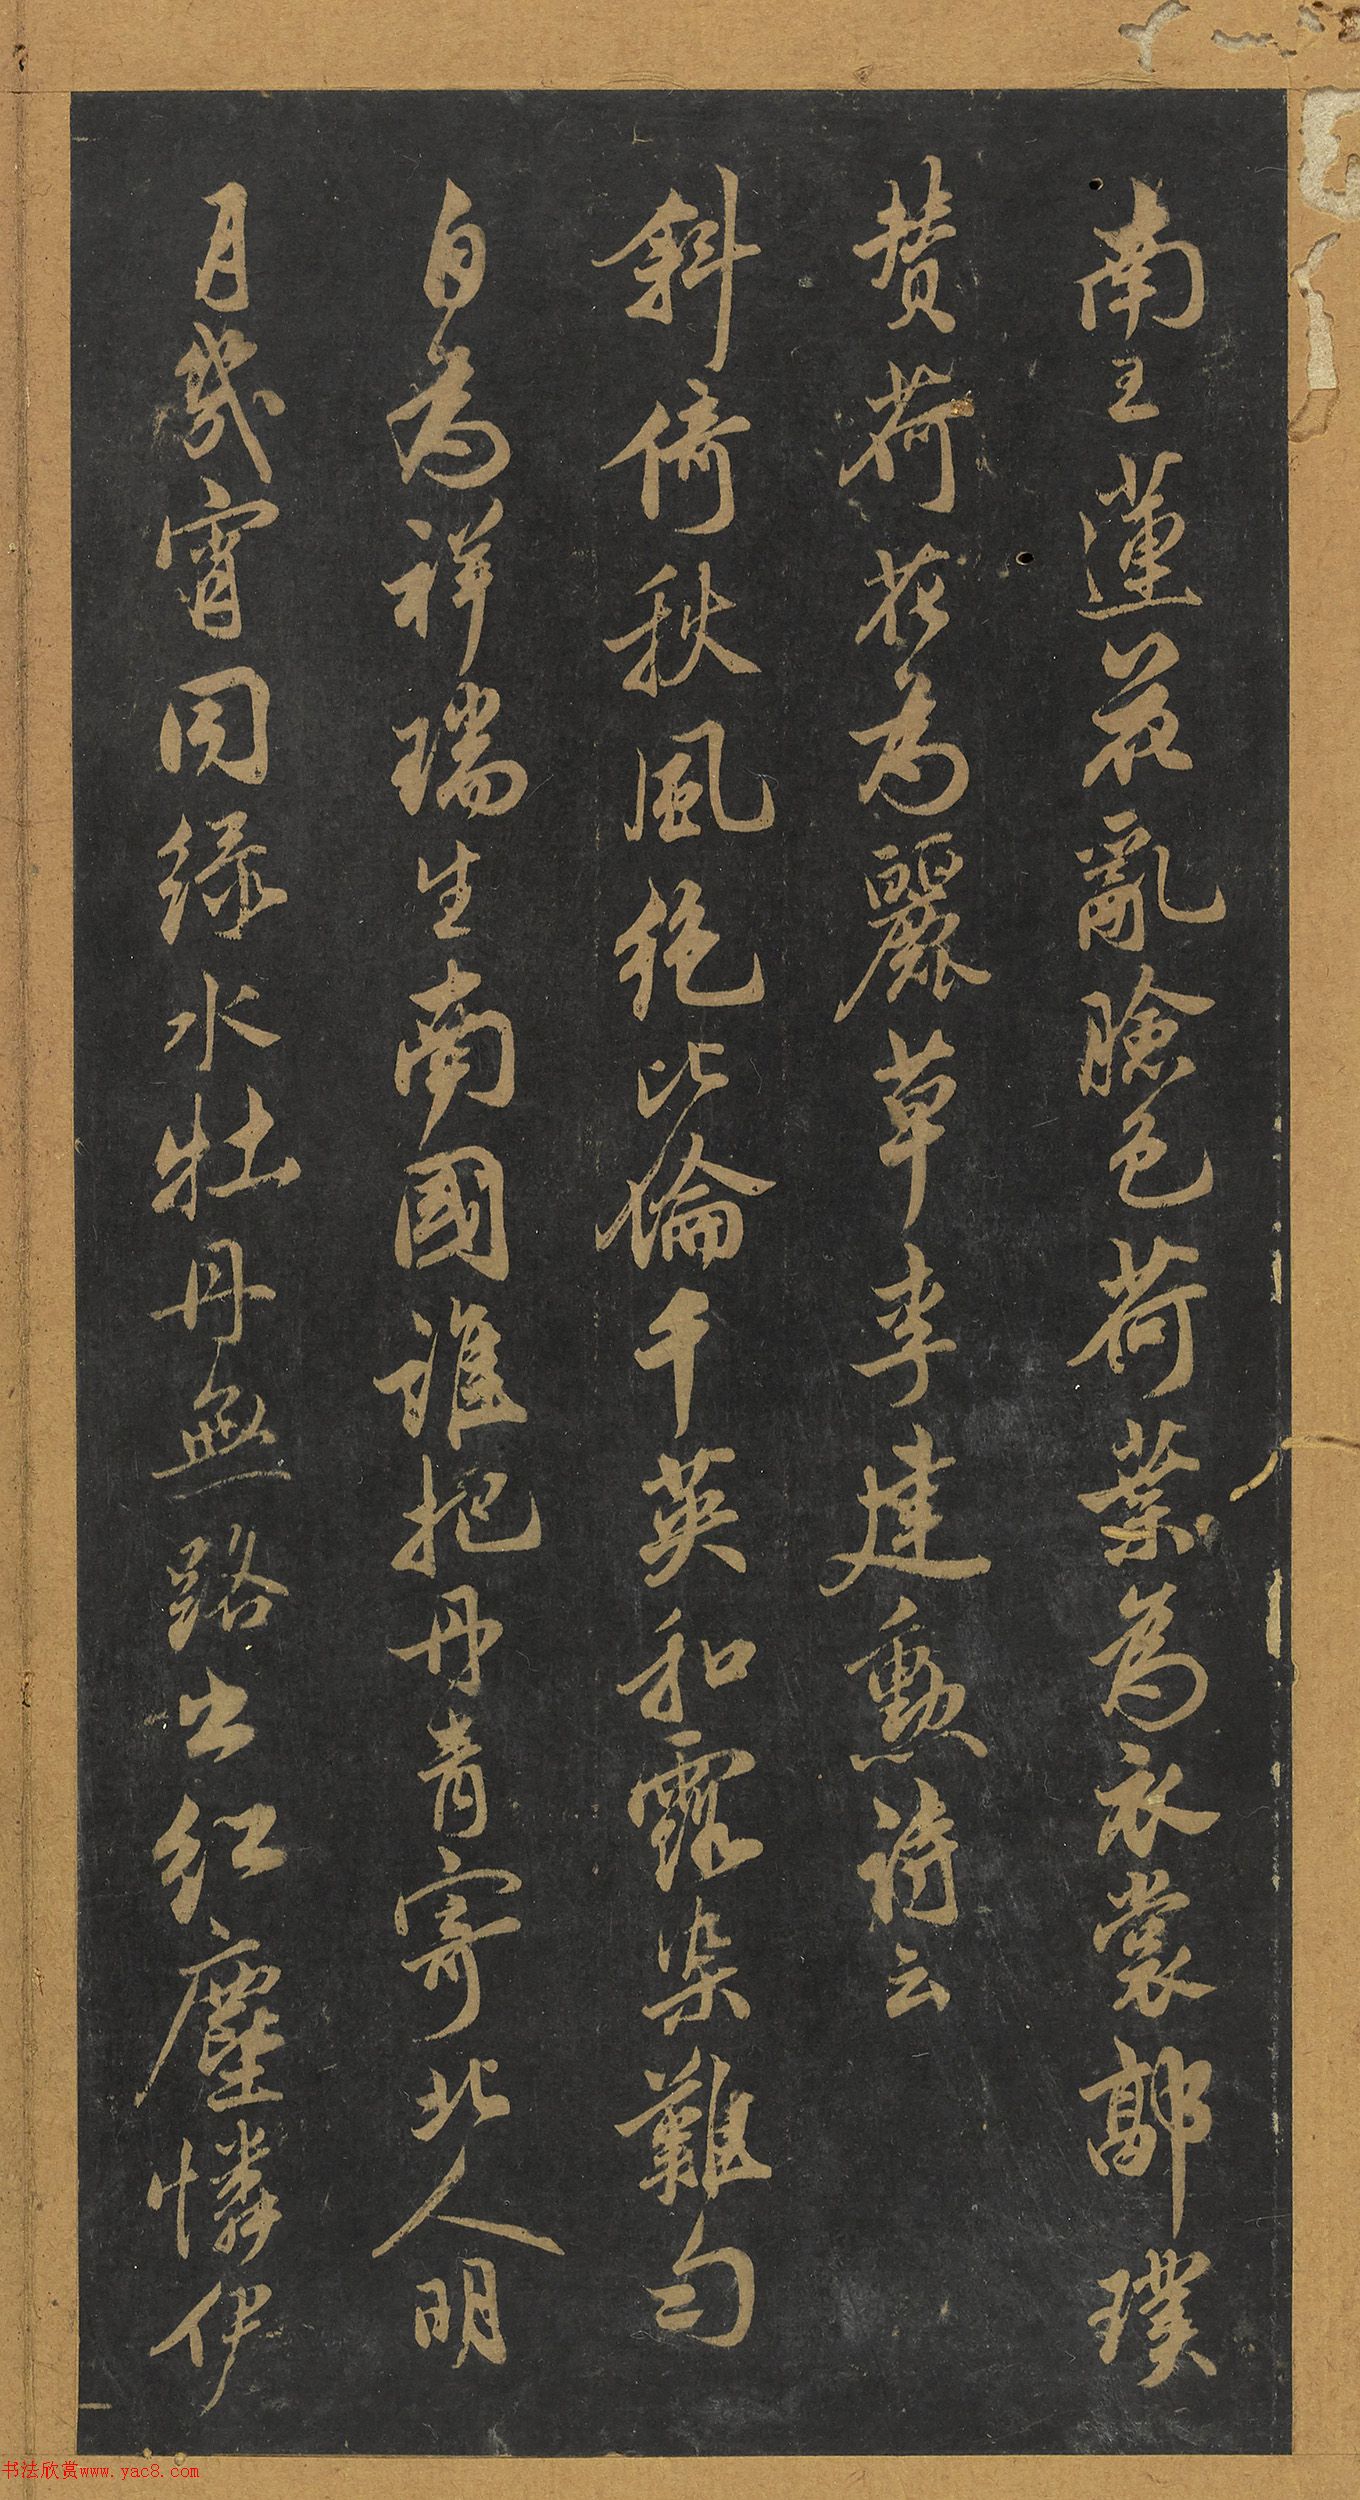 南王蓮花亂臉色荷葉為衣裳郭璞
赞荷花為麗草李建勲詩云
斜倚秋風絕比倫千英和露染難勻
自為祥瑞生南國誰把丹青寄北人明
月幾宵同綠水牡丹無路出紅塵憐伊
书法欣赏www.yac8.com